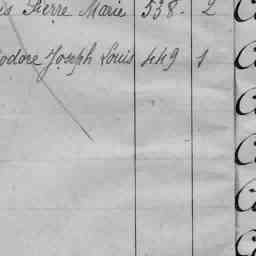 Pierre Marie 538. 2
odore Joseph Louis 449 1